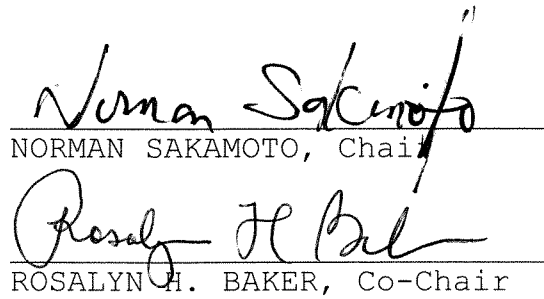 Norman Sakamoto
NORMAN SAKAMOTO, Chair
Rosalyn H Baker
ROSALYN H. BAKER, Co-Chair